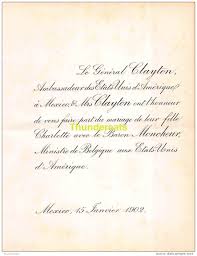 Le Général Clayton,
Ambassadeur des Etats Unis d'Amérique
à Mexico, & Mrs Clayton ont l'honneur
de vous faire part du mariage de leur fille
Thundereds
Charlotte avec le Baron Moncheur,
Ministre de Belgique aux Etats Unis
d'Amérique.
Mexico, 15 Janvier 1902.